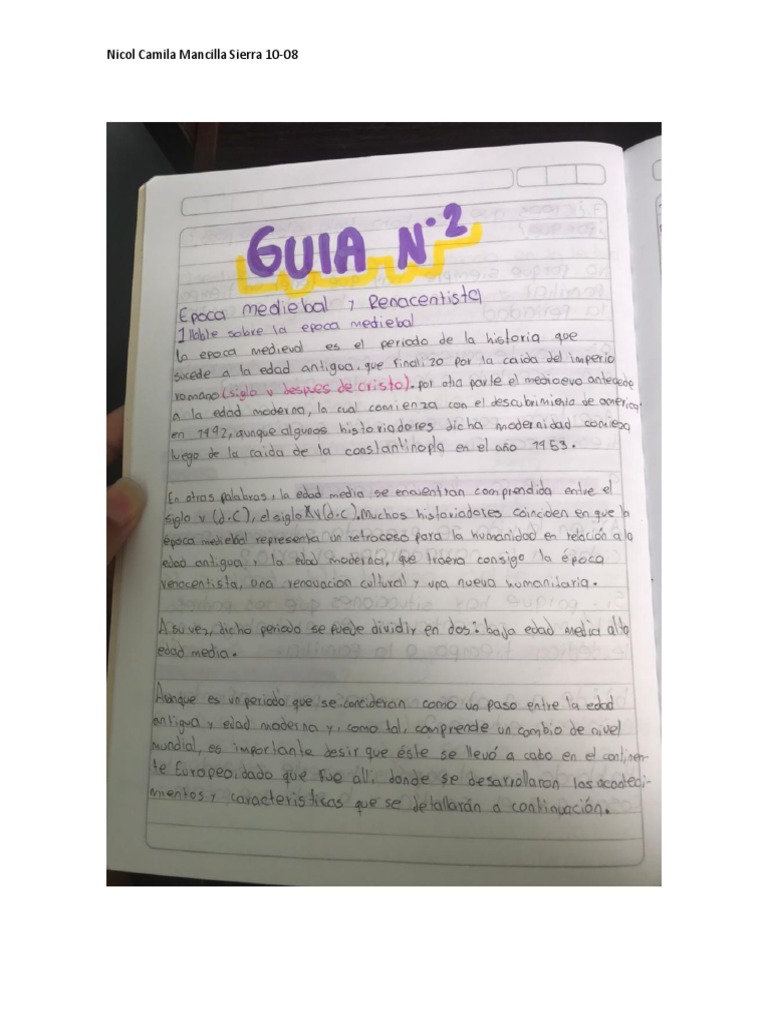 Nicol Camila Mancilla Sierra 10-08
GUIA N°2
Epoca mediebal y Renacentista
1 Hable sobre la epoca mediebal
la epoca medieval es el periodo de la historia que
sucede a la edad antigua, que finalizo por la caida del imperio
romano (siglo v despues de cristo). por otra parte el medioevo antecede
a la edad moderna, la cual comienza con el descubrimiento de america
en 1492, aunque algunos historiadores dicha modernidad comieza
luego de la caida de la constantinopla en el año 1453.
En otras palabras, la edad media se encuentran comprendida entre el
siglo v (d.C), el siglo xv (d.c). Muchos historiadores coinciden en que la
época mediebal representa un retroceso para la humanidad en relación a la
edad antigua, y la edad moderna, que traera consigo la época
renacentista, una renovacion cultural y una nueva humanitaria.
A su vez, dicho periodo se puede dividir en dos: baja edad media alta
edad media.
Aunque es un periodo que se consideran como un paso entre la edad
antigua y edad moderna y, como tal, comprende un cambio de nivel
mundial, es importante desir que éste se llevó a cabo en el continen-
te Europeo, dado que fue alli donde se desarrollaron los aconteci-
mientos y caracteristicas que se detallarán a continuación.